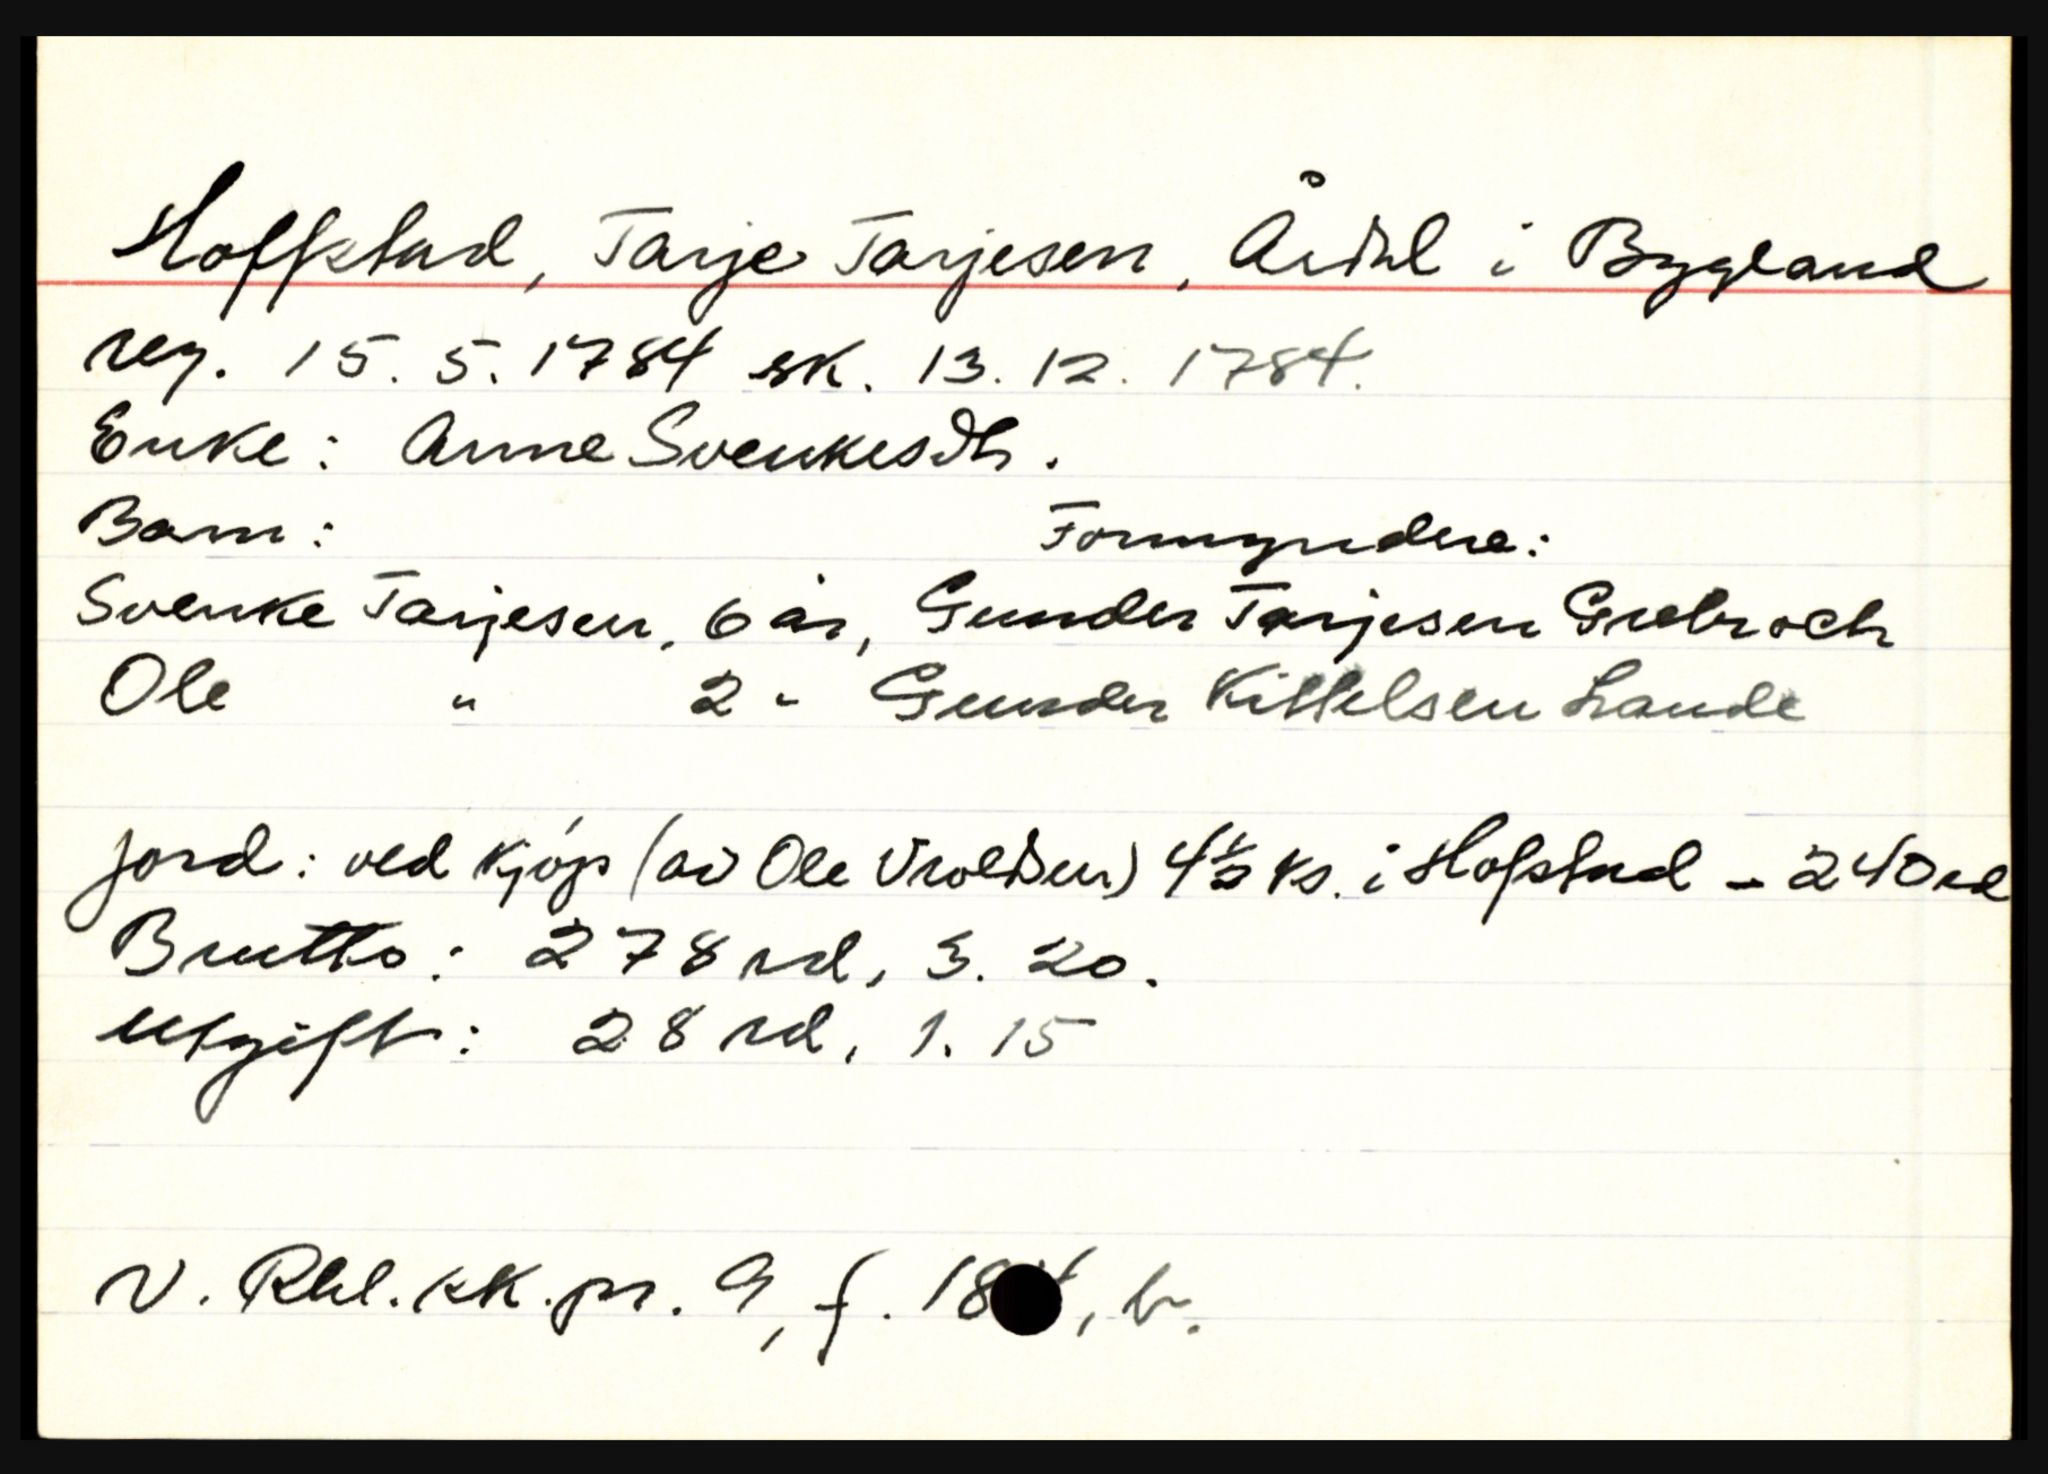 Hoffstad, Tarje Tarjesen, Årdal i Bygland
reg. 15. 5. 1784 sk. 13. 12. 1784.
Enke: Anne Svenkesdtr.
Barn: Formyndere:
Svenke Tarjesen, 6 år, Gunder Tarjesen Grebroch
Ole " 2 " Gunder Kittelsen Lande
Jord: ved kjøp (av Ole Vroldsen) 4½ ks. i Hofstad - 240 rd
Brutto: 278 rd, 3. 20.
Utgift: 28 rd, 1. 15
V. Rbl. sk. pr. 9, f. b.